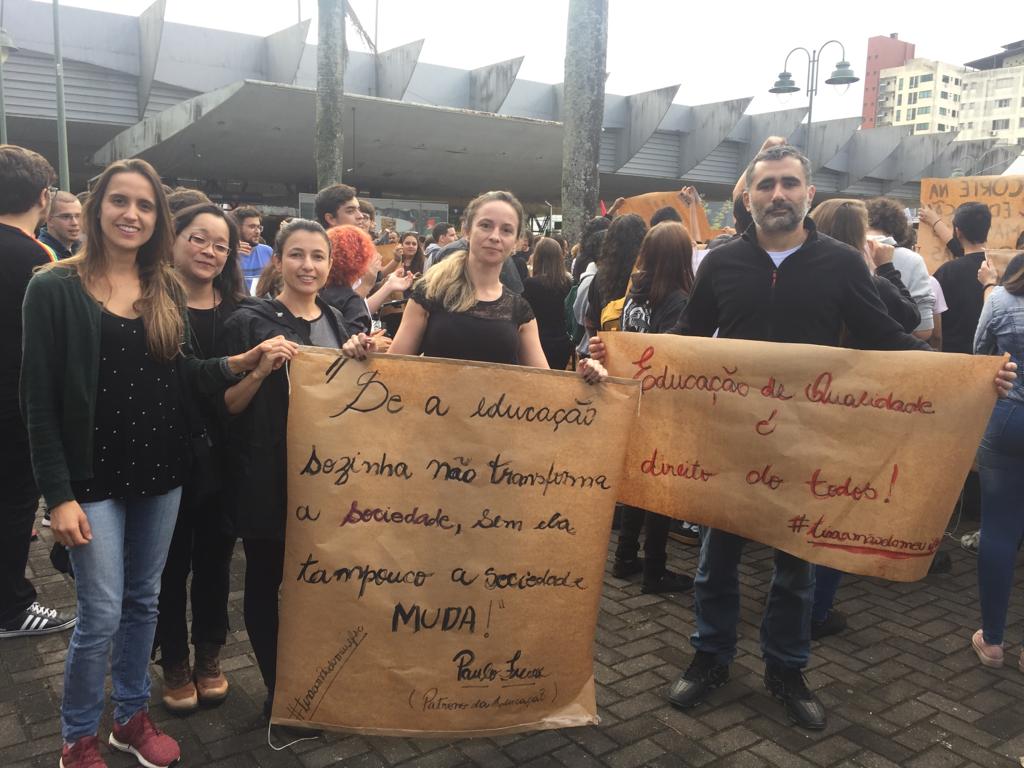 "Se a educação
sozinha não transforma
a sociedade, sem ela
tampouco a sociedade
MUDA!"
Paulo Freire
(Patrono da Educação)
Educação de Qualidade
é
direito do todos!
CORTE NA